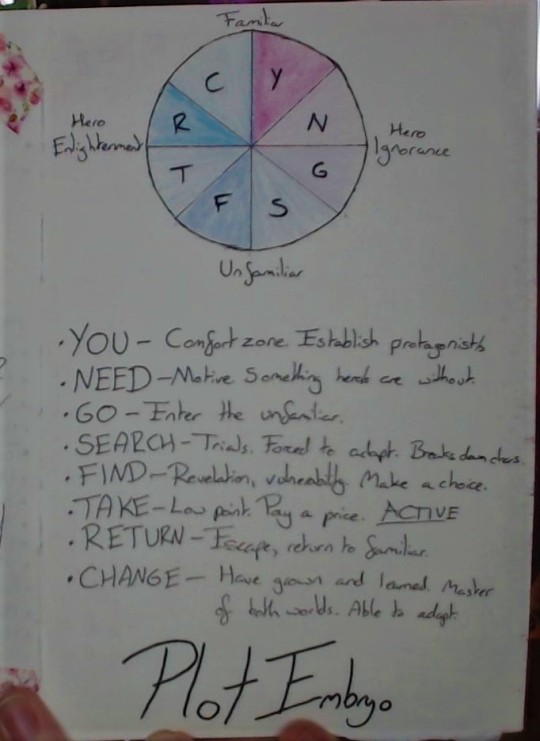 Familiar
C Y
Hero Enlightenment R N Hero Ignorance
T G
F S
Unfamiliar
• YOU – Comfort zone. Establish protagonists
• NEED – Motive Something heros are without.
• GO – Enter the unfamiliar.
• SEARCH – Trials. Forced to adapt. Breaks down chars.
• FIND – Revelation, vulnerability. Make a choice.
• TAKE – Low point. Pay a price. ACTIVE
• RETURN – Escape, return to familiar.
• CHANGE – Have grown and learned. Master
of both worlds. Able to adapt.
Plot Embryo